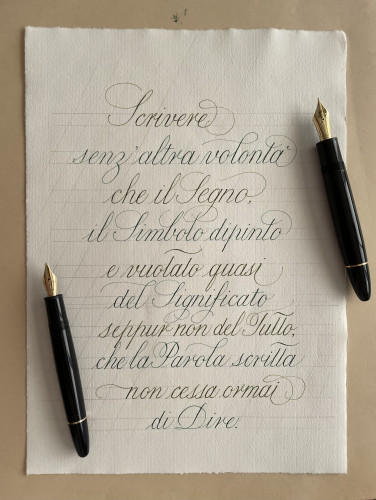 Scrivere
senz'altra volontà
che il Segno,
il Simbolo dipinto
e vuotato quasi
del Significato
seppur non del Tutto,
che la Parola scritta
non cessa ormai
di Dire.